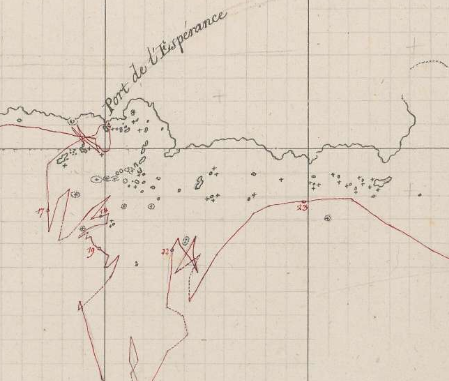 Port de l'Espérance
17
18
19
22
23